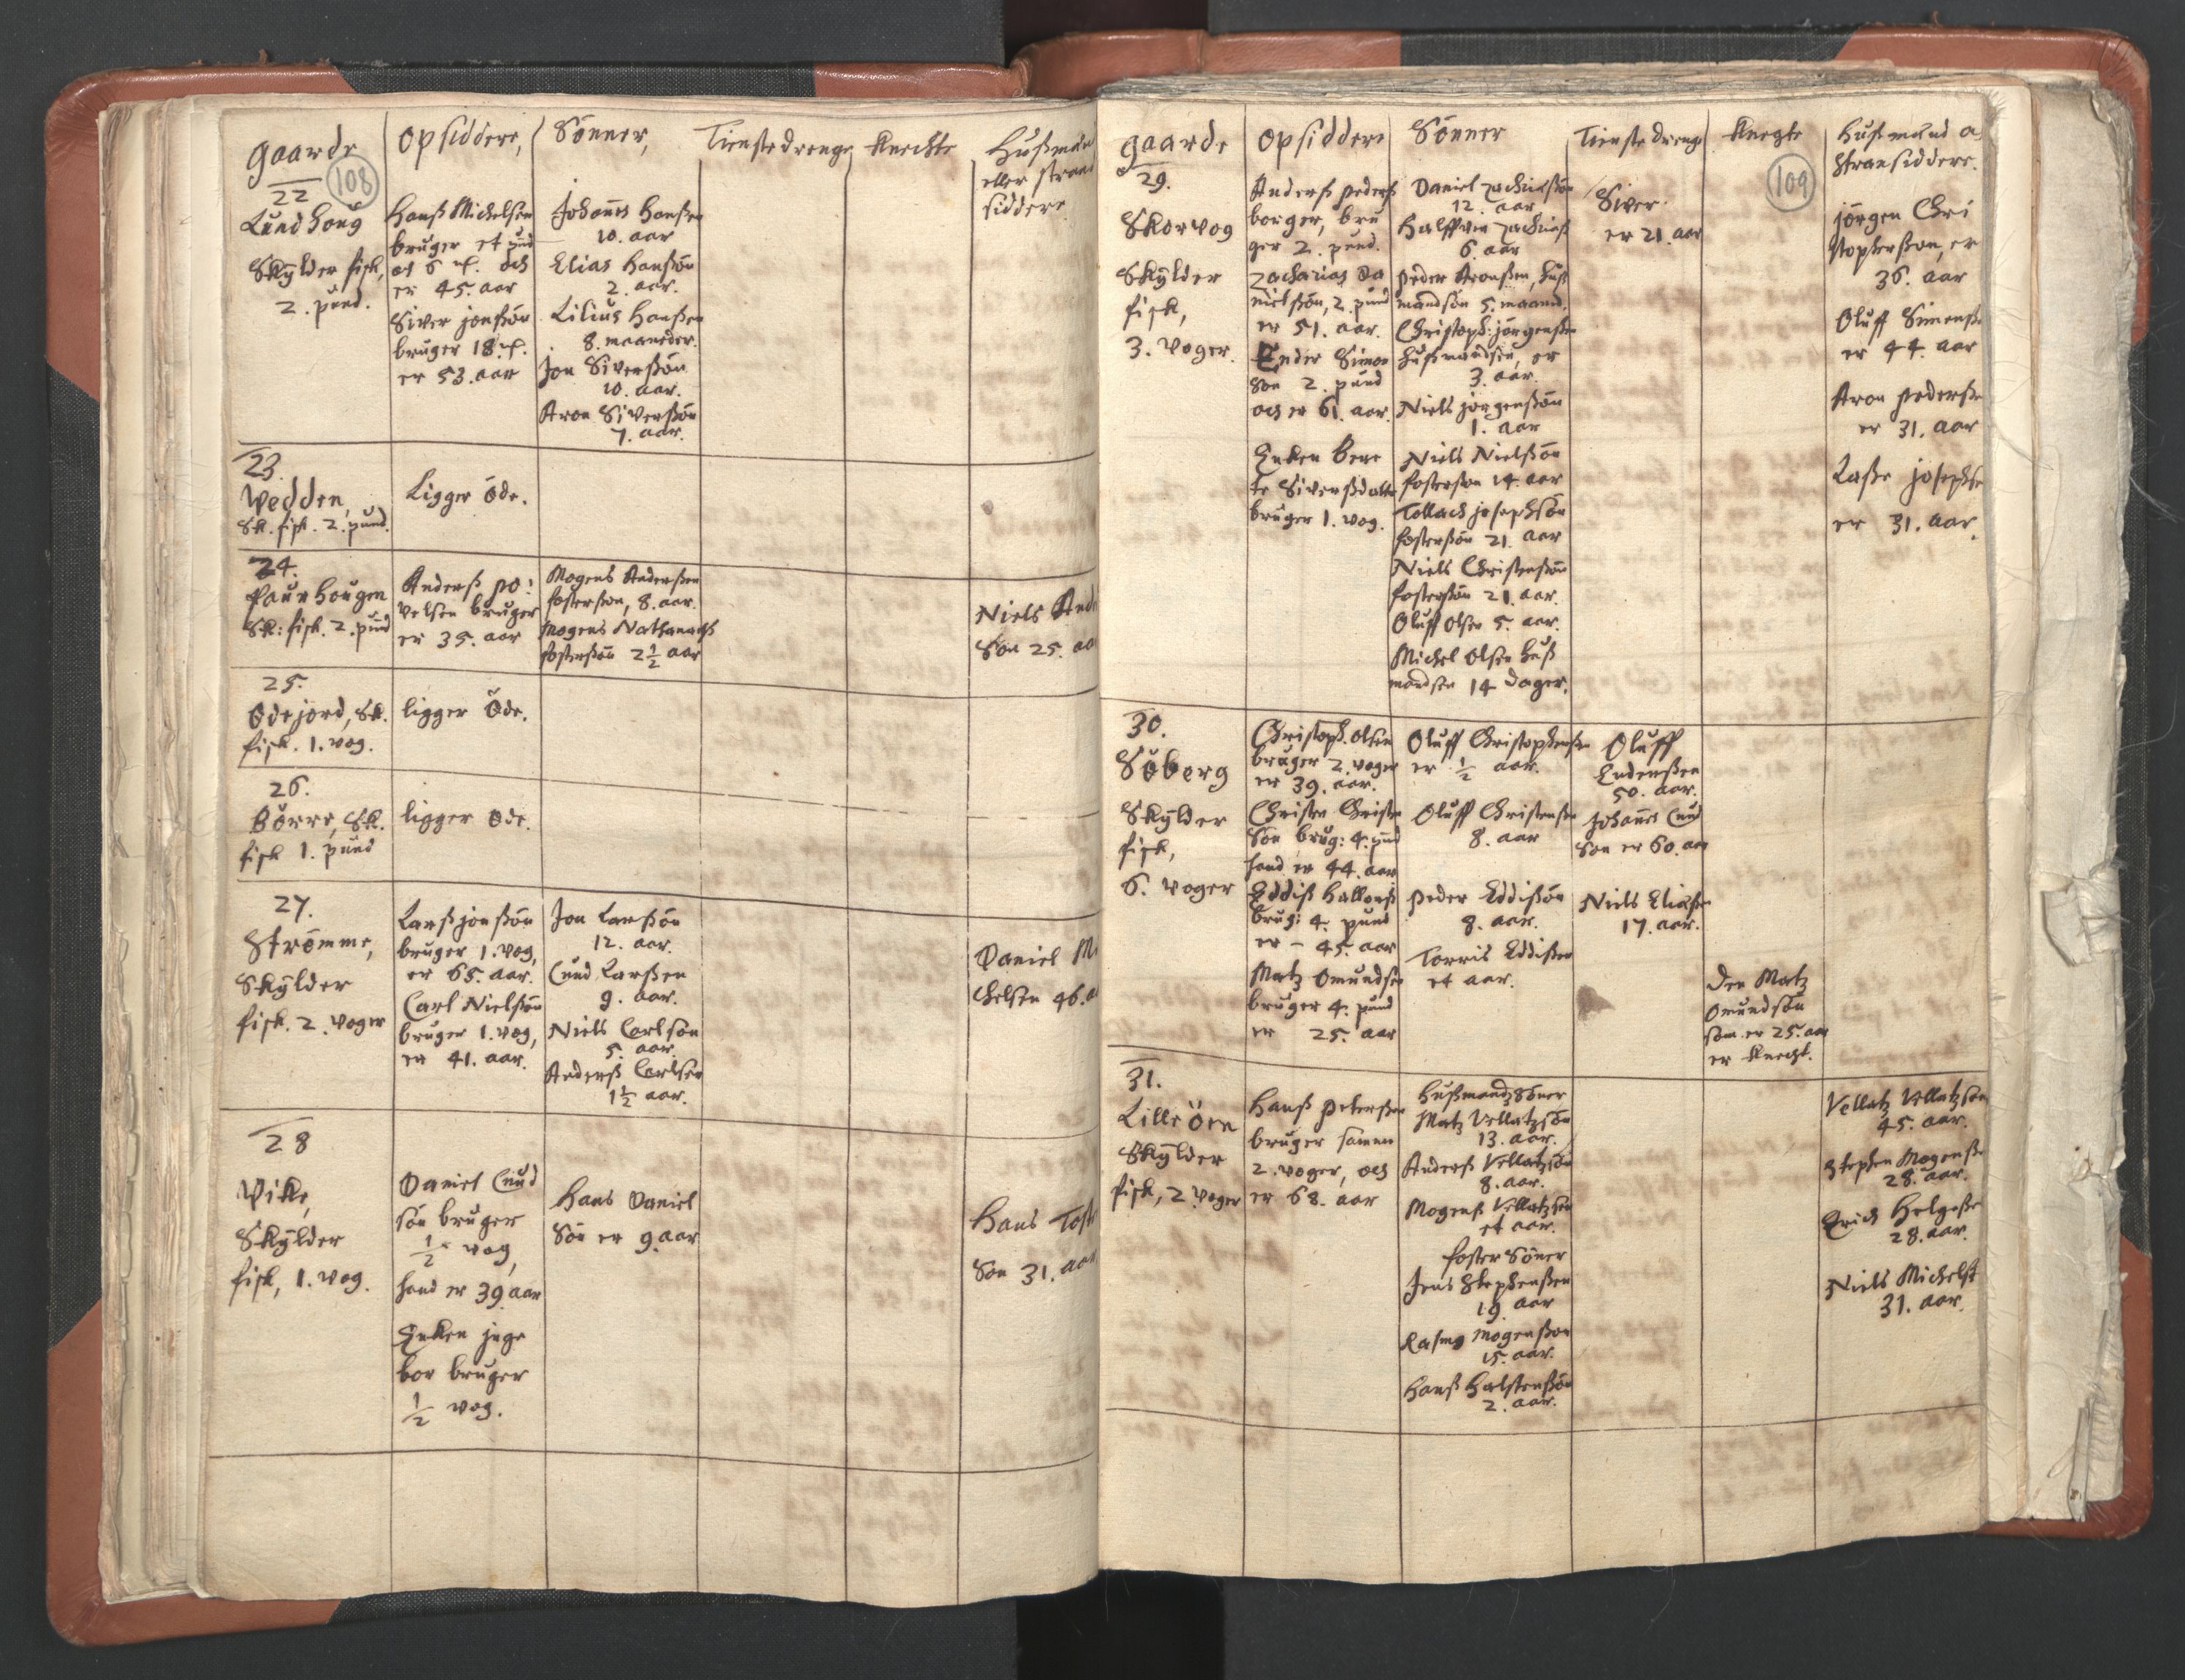 gaarde
108
Opsiddere,
Sönner,
Tienstedrenge
Knechte
Hußmæn
eller strand
siddere
22
Lundhoug
Skÿlder fisk,
2. pund.
Hanß Michelsen
bruger et pund
och
er 45. aar
Siver jonßön
bruger 18
er 53. aar
Johans Hansen
10. aar
Elias Hanßön
2. aar.
Lilius Hanßen
8. maaneder.
Jon Siverßön
10. aar.
Aron Siverßön
7. aar.
23.
Wedden,
Sk. fisk. 2. pund.
Ligger öde.
24.
Paurhougen
Sk: fisk. 2. pund
Anderß po:
velsen bruger
er 35. aar
Mogens Anderßen
fosterßon, 8. aar.
Mogens
fosterßön 2½ aar
Niels And
Son 25. aa
25.
Ödejord, Sk.
fisk. 1. vog.
ligger Öde.
26.
Börre, Sk.
fisk 1. pund
ligger öde.
27.
Strömme,
Skÿlder
fisk. 2. voger
Larß jonßön
bruger 1. vog,
er 65. aar.
Carl Nielßön
bruger 1. vog,
er 41. aar.
Jon Larßön
12. aar.
Cnud Larßen
9. aar.
Niels Carlsön
5. aar.
Anderß Carlsen
1½ aar.
Daniel Mi
chelsen 46. a
28
Vike,
Skÿlder
fisk, 1. vog.
Daniel Cnud
sön bruger
½ vog,
hand er 39 aar
Enken inge
bor bruger
½ vog.
Hans Daniel
Sön er 9 aar
Hans Tost
Son 31. aar
gaarde
Opsiddere
Sönner
Tienstedrenge
Knegte
109
Hußmænd o
Stransiddere.
29.
Skorvog
Skÿlder
fisk,
3. voger.
Anderß Pederß
borger, bru
ger 2. pund.
Zacharias Da
nielßön, 2. pund
er 51. aar.
Ender Simon
Son 2. pund
och er 61. aar.
Enken Bere
te Siverßdatt
bruger 1. vog.
Daniel Zachrisßön
12. aar
Halffven
6. aar
Peder Aronßen, huß
mandsön 5. maaned.
Christoph: jörgenßen
hußmandsön, er
3. aar.
Niels jörgenßön
1. aar
Niels Nielßön
fosterßon 14. aar
Tollach josephsön
fosterßön 21. aar
Niels Christenßön
fosterßön 21. aar.
Oluff Olsen 5. aar.
Michel Olsen huß
mandsen 14 dager.
Siver
er 21. aar
jörgen Chri
stopherßon, er
36. aar
Oluff Simenße
er 44. aar
Aron Pederße
er 31. aar
Laße josephse
er 31. aar.
30.
Söberg
Skÿlder
fisk,
6. voger
Christoph. Olsen
bruger 2. voger
er 39. aar.
Christen Christen
Sön brug: 4. pund
hand er 44. aar
Eddiß Hallonß
brug: 4. pund
er - 45. aar
Matz Omundsen
bruger 4. pund
er 25. aar
Oluff Christophenßen
er ½ aar.
Oluff Christenßen
8. aar
Peder Eddißön
8. aar.
Torris Eddißen
et aar.
Oluff
Enderßen
50. aar.
Johans Cnud
Son er 60. aar
Niels Eliaßen
17. aar.
Den Matz
Omundsön
som er 25. aar
er knecht.
31.
Lilleöen
Skÿlder
fisk, 2 voger
Hanß Peterßen
bruger samen
2. voger, och
er 68. aar
Hußmandz Söner
Matz Vellatzsön
13. aar.
Anderß Vellatzsön
8. aar.
Mogenß Vellatzsen
et aar.
foster Söner
Jens Stephenßen
19. aar
Rasmg Mogenßon
15. aar.
Hanß Halstenßön
2. aar.
Vellatz Vellatzsön
45. aar.
Stephen Mogenße
28. aar.
Erich Helgeße
28. aar.
Niels Michelß
31. aar.